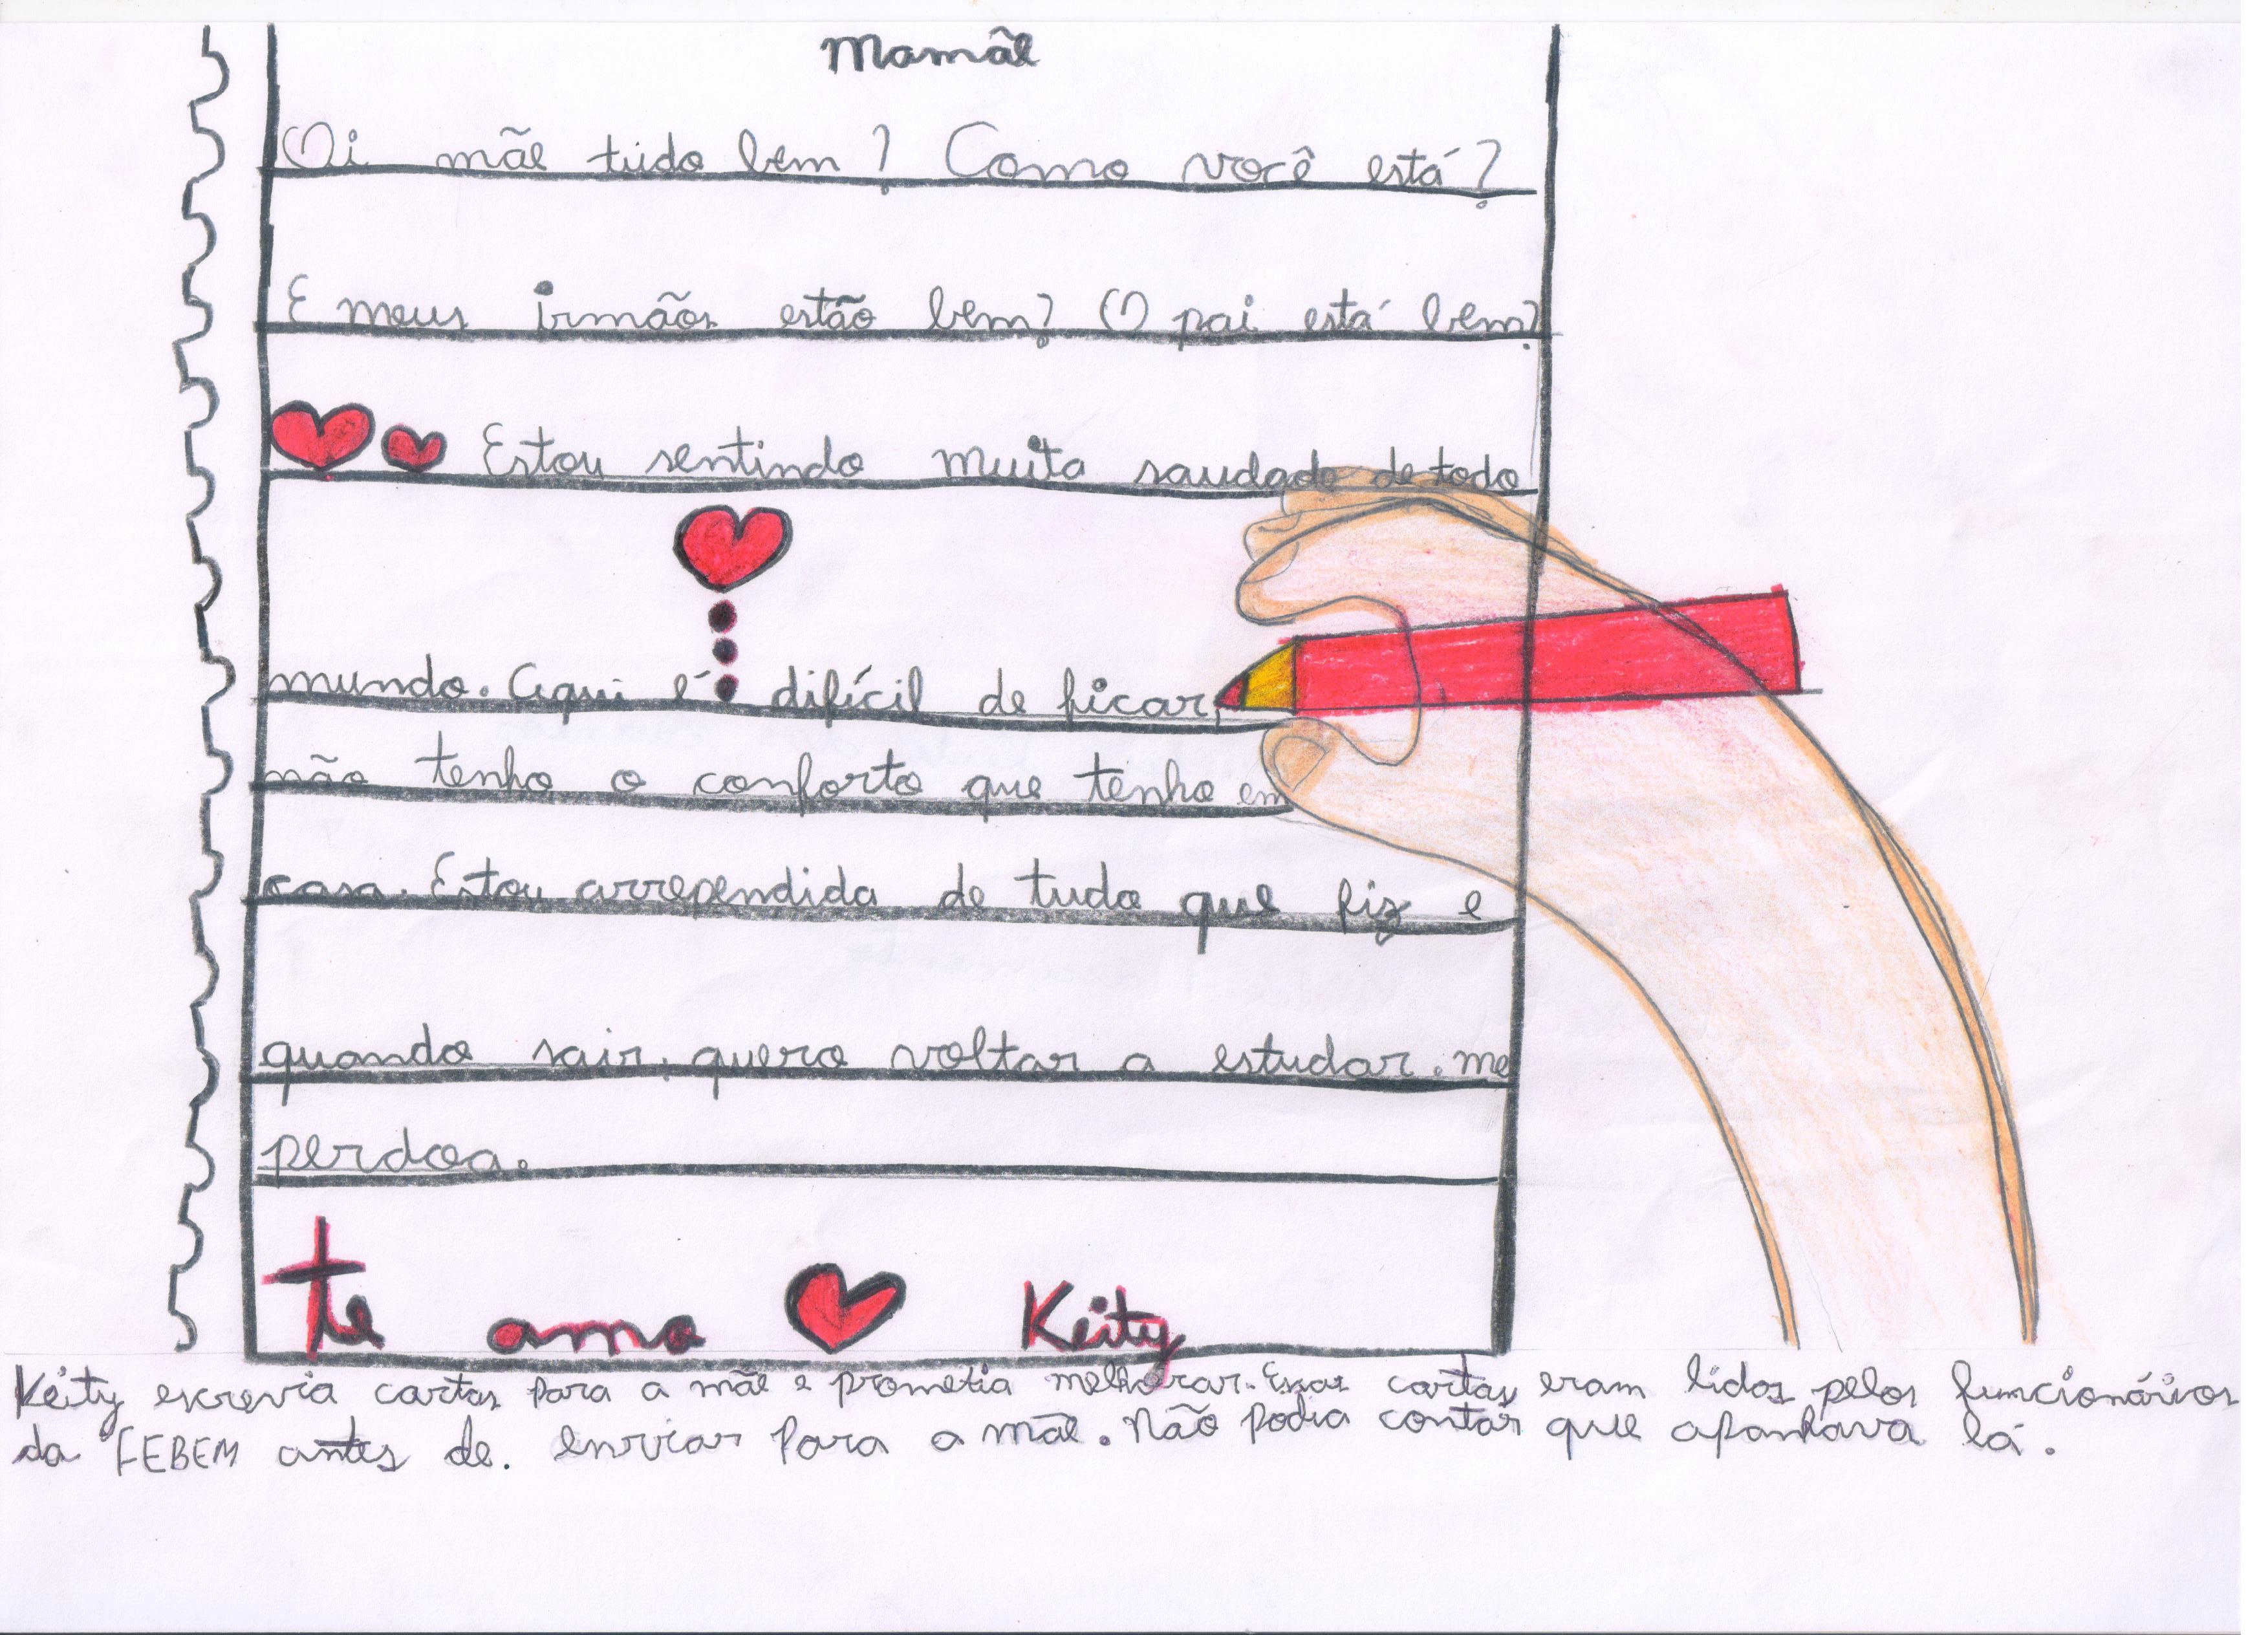 Mamãe
Oi mãe tudo bem? Como você está?
E meus irmãos estão bem? O pai está bem?
Estou sentindo muita saudade de todo
mundo. Aqui é difícil de ficar,
não tenho o conforto que tenho em
casa. Estou arrependida de tudo que fiz e
quando sair. quero voltar a estudar. me
perdoa.
te amo Keity
Keity escrevia cartas para a mãe e prometia melhorar. Essas cartas eram lidas pelos funcionários
da FEBEM antes de. enviar para a mãe. Não podia contar que apanhava lá.